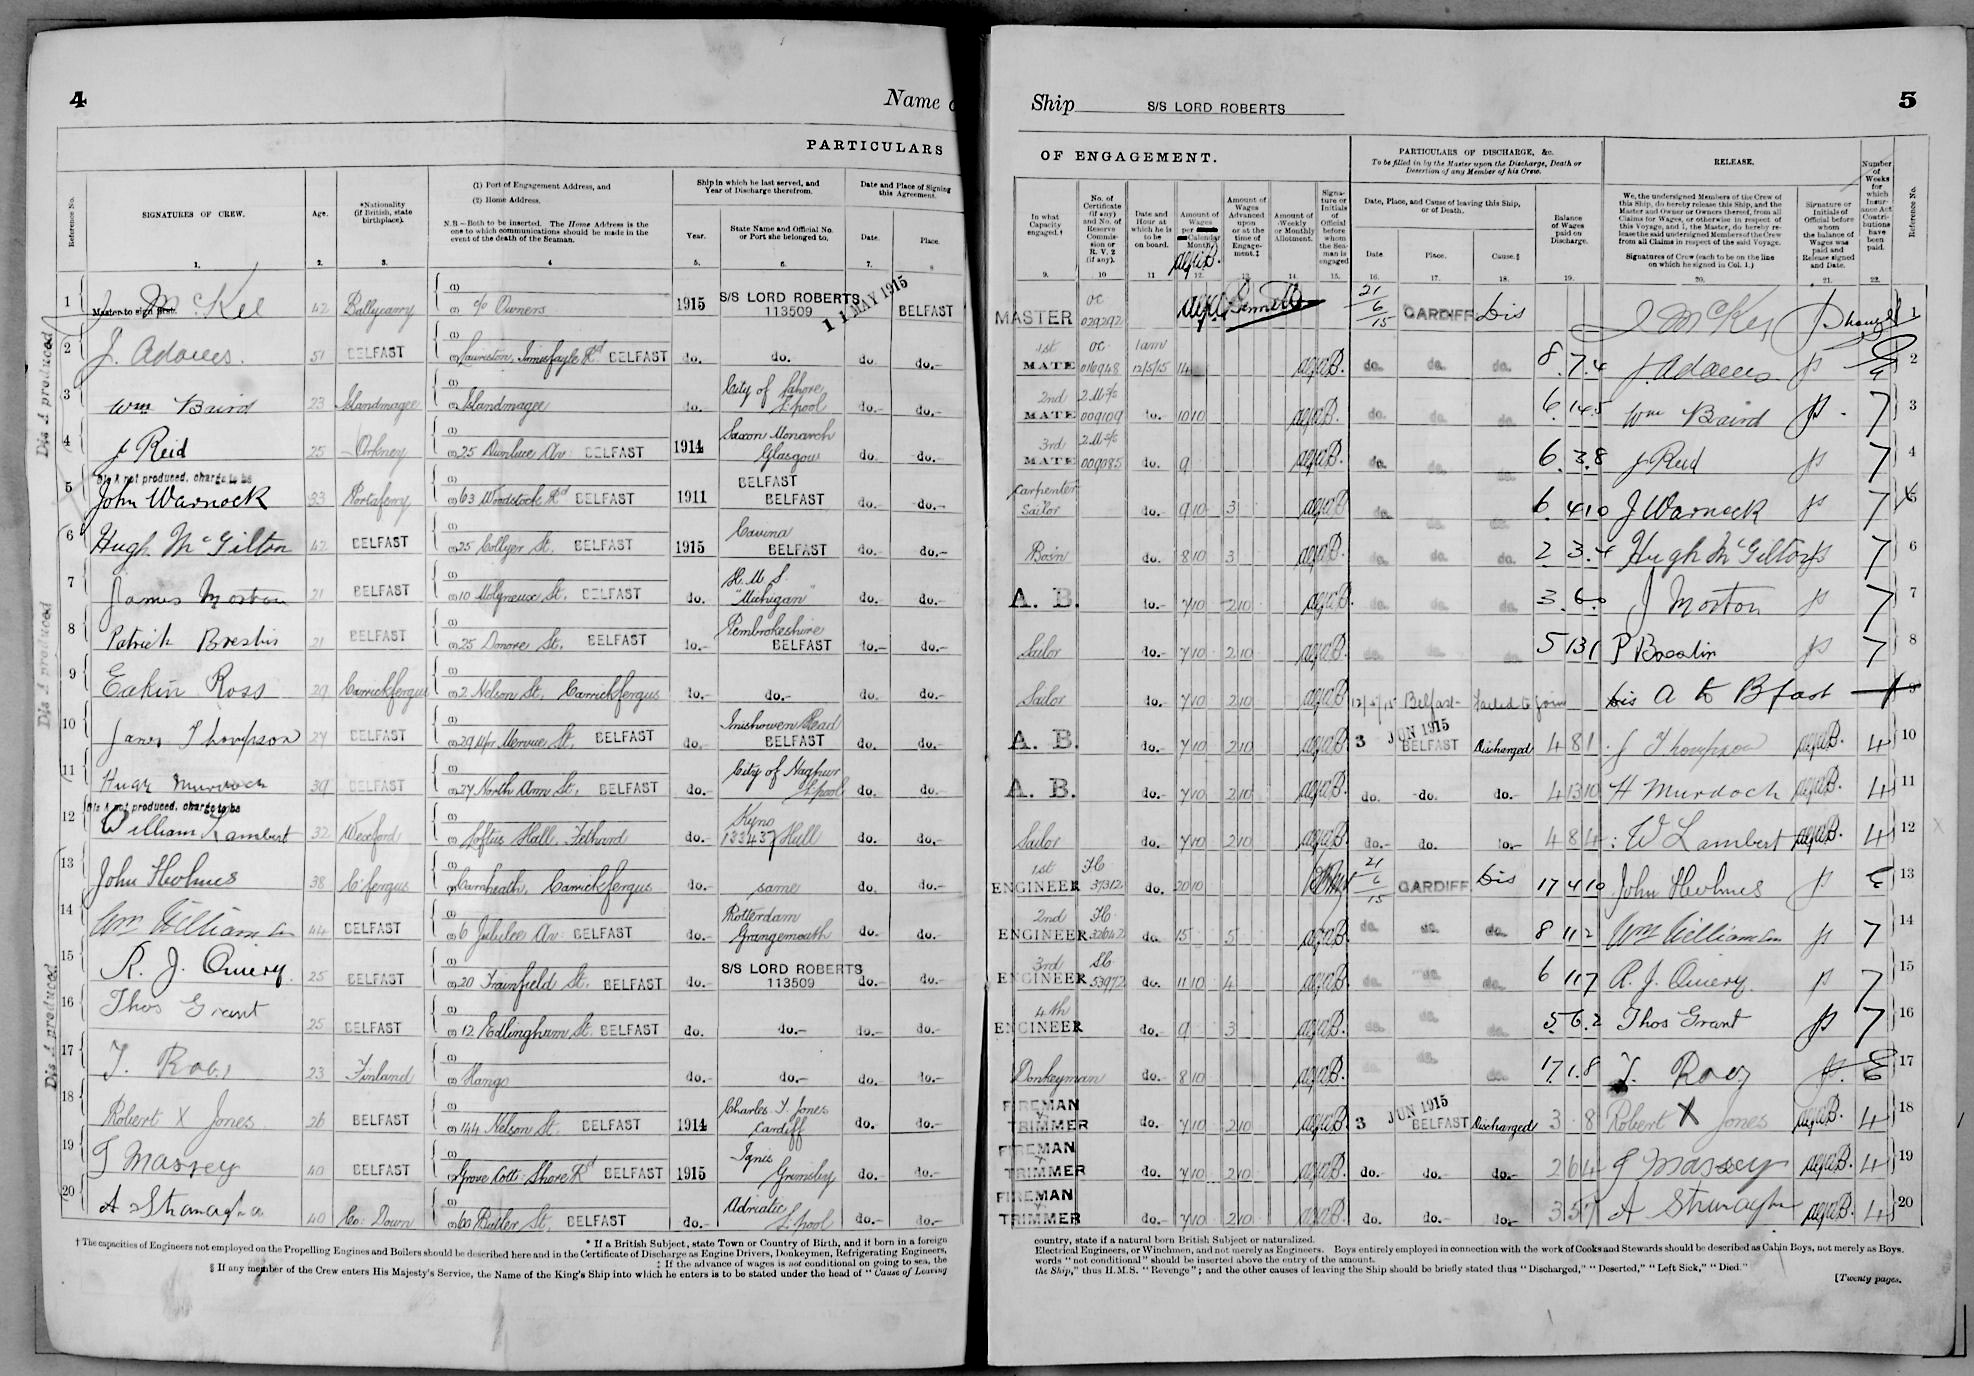 4
Name
PARTICULARS
Reference No.
SIGNATURES OF CREW.
Age.
*Nationality (if British, state birthplace).
(1) Port of Engagement Address, and
(2) Home Address.
N.B.—Both to be inserted. The Home Address is the one to which communications should be made in the event of the death of the Seaman.
Ship in which he last served, and Year of Discharge therefrom.
Year.
State Name and Official No. or Port she belonged to.
Date and Place of Signing this Agreement.
Date.
Place.
1. 2. 3. 4 5. 6. 7. 8
Dis A produced
Dis A produced
Dis A produced
1 Master to sign first. J McKee 42 Ballycarry (1) c/o Owners 1915 S/S LORD ROBERTS 113509 11 MAY 1915 BELFAST
2 J. Adams. 51 BELFAST (1) (2) BELFAST do. do. do. do.
3 Wm Baird 23 Islandmagee (1) (2) Islandmagee do. City of Lahore L'pool do. do.
4 J Reid 25 Orkney (1) (2) 25 Dunluce Av: BELFAST 1914 Saxon Monarch Glasgow do. do.
5 Dis A not produced, charge to be
John Warnock 33 Portaferry (1) (2) 63 Woodstock Rd BELFAST 1911 BELFAST BELFAST do. do.
6 Hugh McGilton 42 BELFAST (1) (2) 25 Collyer St. BELFAST 1915 Cavina BELFAST do. do.
7 James Morton 21 BELFAST (1) (2) 10 Molyneux St. BELFAST do. H.M.S. "Michigan" do. do.
8 Patrick Breslin 21 BELFAST (1) (2) 25 Donore St. BELFAST do. Pembrokeshire BELFAST do. do.
9 Eakin Ross 29 Carrickfergus (1) (2) 2 Nelson St. Carrickfergus do. do. do. do.
10 James Thompson 27 BELFAST (1) (2) 29 Upr Mervue St. BELFAST do. Inishowen Head BELFAST do. do.
11 Hugh Murdoch 39 BELFAST (1) (2) 27 North Ann St. BELFAST do. City of Nagpur L'pool do. do.
12 Dis A not produced, charge to be
William Lambert 32 Wexford (1) (2) Loftus Hall, Fethard do. Kyno 133437 Hull do. do.
13 John Holmes 38 C'fergus (1) (2) Barnheath, Carrickfergus do. same do. do.
14 Wm Williamson 44 BELFAST (1) (2) 6 Jubilee Av: BELFAST do. Rotterdam Grangemouth do. do.
15 R. J. Quiery. 25 BELFAST (1) (2) 20 Trainfield St. BELFAST do. S/S LORD ROBERTS 113509 do. do.
16 Thos Grant 25 BELFAST (1) (2) 12 Edlingham St. BELFAST do. do. do. do.
17 T. 23 Finland (1) (2) Hango do. do. do. do.
18 Robert X Jones 26 BELFAST (1) (2) 144 Nelson St. BELFAST 1914 Charles T. Jones Cardiff do. do.
19 J Massey 40 BELFAST (1) (2) Grove Cott: Shore Rd BELFAST 1915 Ignis Grimsby do. do.
20 A Stranaghan 40 Co: Down (1) (2) 60 Butler St. BELFAST do. Adriatic L'pool do. do.
* If a British Subject, state Town or Country of Birth, and if born in a foreign
† The capacities of Engineers not employed on the Propelling Engines and Boilers should be described here and in the Certificate of Discharge as Engine Drivers, Donkeymen, Refrigerating Engineers,
‡ If the advance of wages is not conditional on going to sea, the
§ If any member of the Crew enters His Majesty's Service, the Name of the King's Ship into which he enters is to be stated under the head of "Cause of Leaving
Ship S/S LORD ROBERTS
5
OF ENGAGEMENT.
PARTICULARS OF DISCHARGE, &c.
To be filled in by the Master upon the Discharge, Death or Desertion of any Member of his Crew.
RELEASE.
In what Capacity engaged.†
No. of Certificate (if any) and No. of Reserve Commission or R. V. 2 (if any).
Date and Hour at which he is to be on board.
Amount of Wages per Calendar Month.
Amount of Wages Advanced upon or at the time of Engagement.‡
Amount of Weekly or Monthly Allotment.
Signature or Initials of Official before whom the Seaman is engaged
Date, Place, and Cause of leaving this Ship, or of Death.
Date
Place.
Cause.§
Balance of Wages paid on Discharge.
We, the undersigned Members of the Crew of this Ship, do hereby release this Ship, and the Master and Owner or Owners thereof, from all Claims for Wages, or otherwise in respect of this Voyage, and I, the Master, do hereby release the said undersigned Members of the Crew from all Claims in respect of the said Voyage.
Signatures of Crew (each to be on the line on which he signed in Col. 1.)
Signature or Initials of Official before whom the balance of Wages was paid and Release signed and Date.
Number of Weeks for which Insurance Act Contributions have been paid.
Reference No.
9. 10 11 12. 13. 14. 15. 16. 17. 18. 19. 20. 21. 22.
MASTER OC 029292 21/6/15 CARDIFF Dis J McKee 1
1st MATE OC 016948 1am 12/5/15 14 do. do. do. 8. 7. 4 J. Adams 2
2nd MATE 009109 do. 10 10 do. do. do. 6. 14. 5 Wm Baird 7 3
3rd MATE 009085 do. 9 do. do. do. 6. 3. 8 J Reid 7 4
Carpenter Sailor do. 9 10 3 do. do. do. 6. 4 10 J Warnock 7 5
Bosn do. 8 10 3 do. do. do. 2. 3. 4 Hugh McGilton 7 6
A. B. do. 7 10 2 10 do. do. do. 3. 6. 0 J Morton 7 7
Sailor do. 7 10 2 10 do. do. do. 5 13 1 P Breslin 7 8
Sailor do. 7 10 2 10 12/5/15 Belfast Failed to join Dis A to Bfast 9
A. B. do. 7 10 2 10 3 JUN 1915 BELFAST Discharged 4 8 1 J Thompson 4 10
A. B. do. 7 10 2 10 do. do. do. 4 13 10 H Murdoch 4 11
Sailor do. 7 10 2 10 do. do. do. 4 8 4 W Lambert 4 12
1st ENGINEER 37312 do. 20 10 21/6/15 CARDIFF Dis 17 4 10 John Holmes 13
2nd ENGINEER 32642 do. 15 5 do. do. do. 8 11 2 Wm Williamson 7 14
3rd ENGINEER 53972 do. 11 10 4 do. do. do. 6 11 7 R. J. Quiery. 7 15
4th ENGINEER do. 9 3 do. do. do. 5 6. 2 Thos Grant 7 16
Donkeyman do. 8 10 do. do. do. 17. 1. 8 T. 17
FIREMAN & TRIMMER do. 7 10 2 10 3 JUN 1915 BELFAST Discharged 3 8 Robert X Jones 4 18
FIREMAN & TRIMMER do. 7 10 2 10 do. do. do. 2 6 4 J Massey 4 19
FIREMAN & TRIMMER do. 7 10 2 10 do. do. do. 3 5 7 A Stranaghan 4 20
country, state if a natural born British Subject or naturalized.
Electrical Engineers, or Winchmen, and not merely as Engineers. Boys entirely employed in connection with the work of Cooks and Stewards should be described as Cabin Boys, not merely as Boys.
words "not conditional" should be inserted above the entry of the amount.
the Ship," thus H.M.S. "Revenge"; and the other causes of leaving the Ship should be briefly stated thus "Discharged," "Deserted," "Left Sick," "Died."
[Twenty pages.